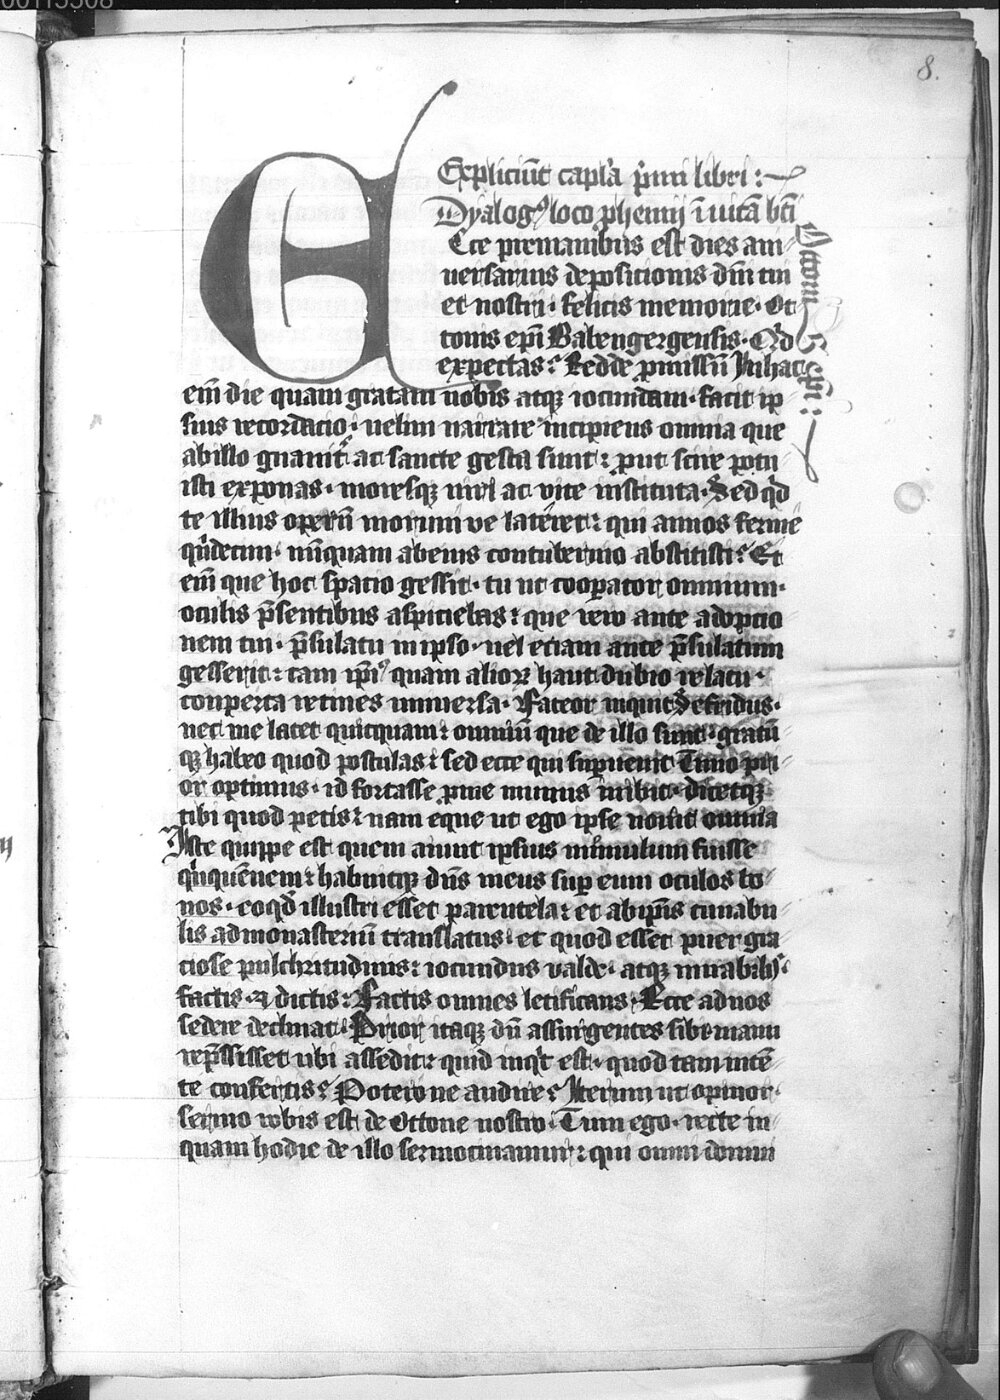 8.
Expliciūt capľa p̄mi libri :
Dyalogꝰ loco phemii ī vitā bt̄i
Ottonis Epī :
Ecce premanibus est dies ani
versarius depositionis dn̄i tui
et nostri · felicis memorie · Ot
tonis epī Babengergensis · Qd
expectas : Redde p̱missū In hac
em̄ die quam gratam nobis atqꝫ iocundam · facit ip
sius recordacio · velim narrare incipiens omnia que
ab illo gnavit͛ ac sancte gesta sunt : put scire potu
isti exponas · moresqꝫ viri ac vite instituta · Sed qd
te illius operū morum ve lateret : qui annos ferme
qͥdecim · nūquam abeius contubernio abstitisti : Et
em̄ que hoc spatio gessit · tu ut coopator omnium ·
oculis p̄sentibus aspiciebas : que vero ante adoptio
nem tui · p̄sulatu in ipso · vel etiam ante p̄sulatum
gesserit : tam ip̄iꝰ quam alioꝝ haut dubio relatu ·
conperta retines universa · Fateor inquit Sefridus ·
nec me latet quicquam : omniū que de illo sunt · gratū
qꝫ habeo quod postulas : sed ecce qui supvenit Timo pri
or optimus · id fortasse p̱me munus inibit · dicetqꝫ
tibi quod petis : nam eque ut ego ipse novit omnia
Iste quippe est quem aiunt ipsius nūmulum fuisse
qͥnquēnem : habuitqꝫ dn̄s meus sup eum oculos bo
nos · eoqd̄ illustri esset parentela : et abip̄is cunabu
lis admonasteriū translatus : et quod esset puer gra
ciose pulchritudinis : iocundus valde · atqꝫ mirabilibꝰ ·
factis · ⁊ dictis : Factis omnes letificans · Ecce ad nos
sedere declinat : Prior itaqꝫ dū assurgentes sibi manu
rep̄ssisset ubi assedit : quid inqͥt est · quod tam intē
te confertis : Potero ne audire : Iterum ut opinor ·
sermo vobis est de Ottone nostro · Tum ego · recte in
quam hodie de illo sermocinamur : qui omni domui